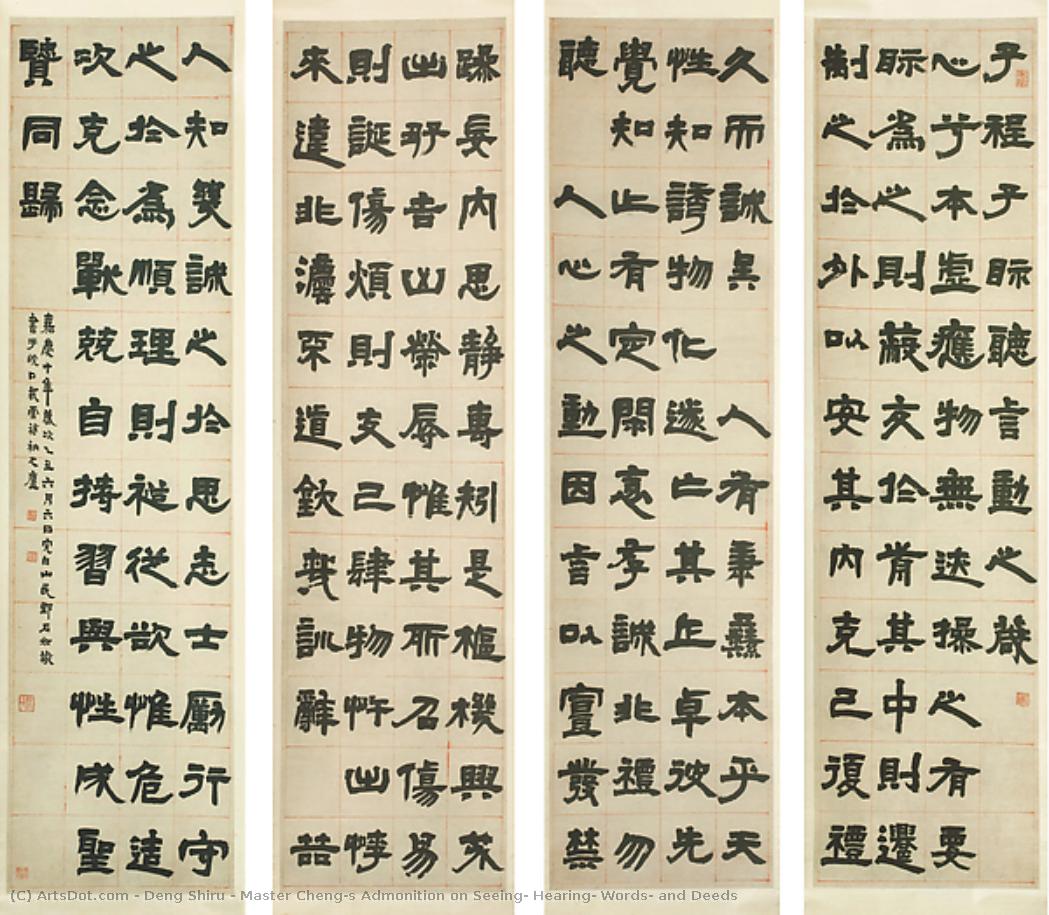 子程子眎聽言動之箴
心兮本虛應物無迹操之有要
眎為之則蔽交於前其中則遷
制之於外以安其內克己復禮
久而誠矣 人有秉彝本乎天
性知誘物化遂亡其正卓彼先
覺知止有定閑邪存誠非禮勿
聽 人心之動因言以宣發禁
躁妄內思靜專矧是樞機興戎
出好吉凶榮辱惟其所召傷易
則誕傷煩則支己肆物忤出悖
來違非灋不道欽哉訓辭 喆
人知幾誠之於思志士厲行守
之於為順理則裕從欲惟危造
次克念戰兢自持習與性成聖
賢同歸
嘉慶十年歲次乙丑六月六日完白山民鄧石如敬
書于皖口
(C) ArtsDot.com - Deng Shiru - Master Cheng-s Admonition on Seeing- Hearing- Words- and Deeds